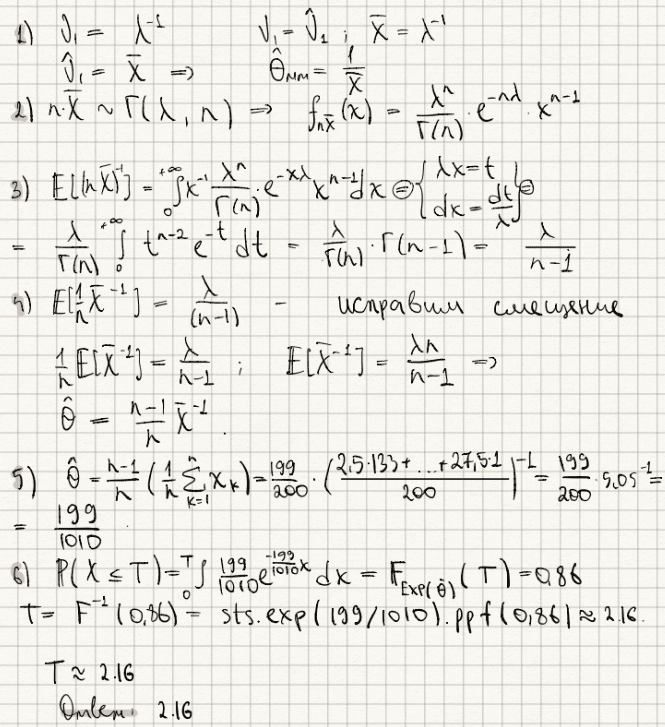 1) ν₁ = λ⁻¹    ν₁ = ν̂₁ ; X̄ = λ⁻¹
ν̂₁ = X̄ ⇒ θ̂ₘₘ = 1/X̄
2) n·X̄ ~ Γ(λ, n) ⇒ f_{nX̄}(x) = λⁿ/Γ(n) · e^{-nλ} · x^{n-1}
3) E[(nX̄)⁻¹] = ∫₀^{+∞} x⁻¹ λⁿ/Γ(n) · e^{-xλ} x^{n-1} dx ⊜ {λx = t, dx = dt/λ} ⊜
= λ/Γ(n) ∫₀^{+∞} t^{n-2} e^{-t} dt = λ/Γ(n) · Γ(n-1) = λ/(n-1)
4) E[1/n X̄⁻¹] = λ/(n-1) – исправим смещение
1/n E[X̄⁻¹] = λ/(n-1) ; E[X̄⁻¹] = λn/(n-1) ⇒
θ̂ = (n-1)/n X̄⁻¹.
5) θ̂ = (n-1)/n (1/n ∑_{k=1}^{n} x_k) = 199/200 · ((2,5·133+...+27,5·1)/200)⁻¹ = 199/200 · 5,05⁻¹ =
= 199/1010.
6) P(X ≤ T) = ∫₀^T 199/1010 e^{-199/1010 x} dx = F_{Exp(θ̂)}(T) = 0,86
T = F⁻¹(0,86) = sts.exp(199/1010).ppf(0,86) ≈ 2.16.
T ≈ 2.16
Ответ: 2.16